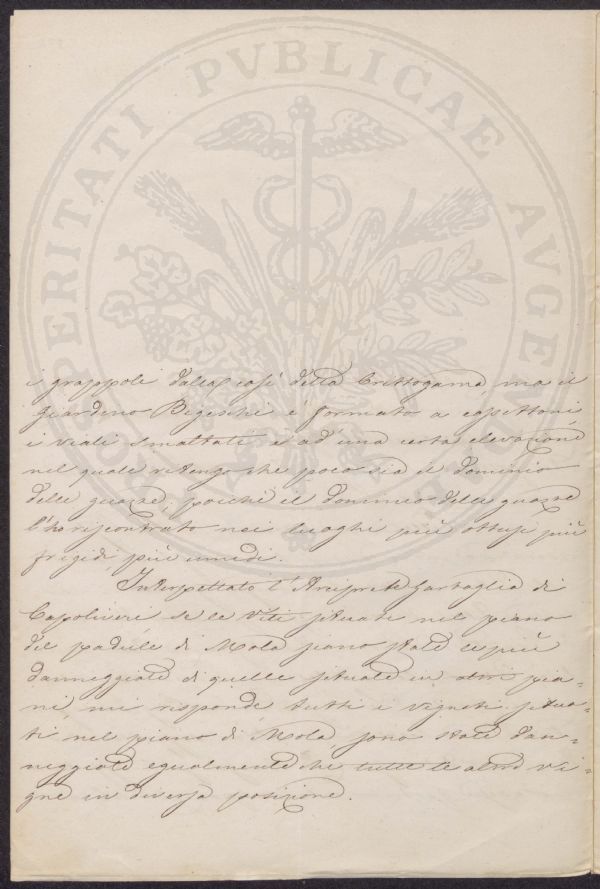 PROSPERITATI PVBLICAE AVGENDAE
i grappoli dalla così detta Crittogama, ma il
giardino Bigeschi è formato a cospettoni
i viali smattati e ad una certa elevazione
nel quale ritengo che poco sia il dominio
delle guazze, poiché il dominio delle guazze
l'ho riscontrato nei luoghi più ottusi più
frigidi, più umidi.
Interpettato l'Arciprete Gartaglia di
Capoliveri se le Viti situate nel piano
del padule di Mola siano state le più
danneggiate di quelle situate in altri pia=
ni, mi risponde tutti i vigneti situa=
ti nel piano di Mola, sono state dan=
neggiate egualmente che tutte le altre vi=
gne in diversa posizione.